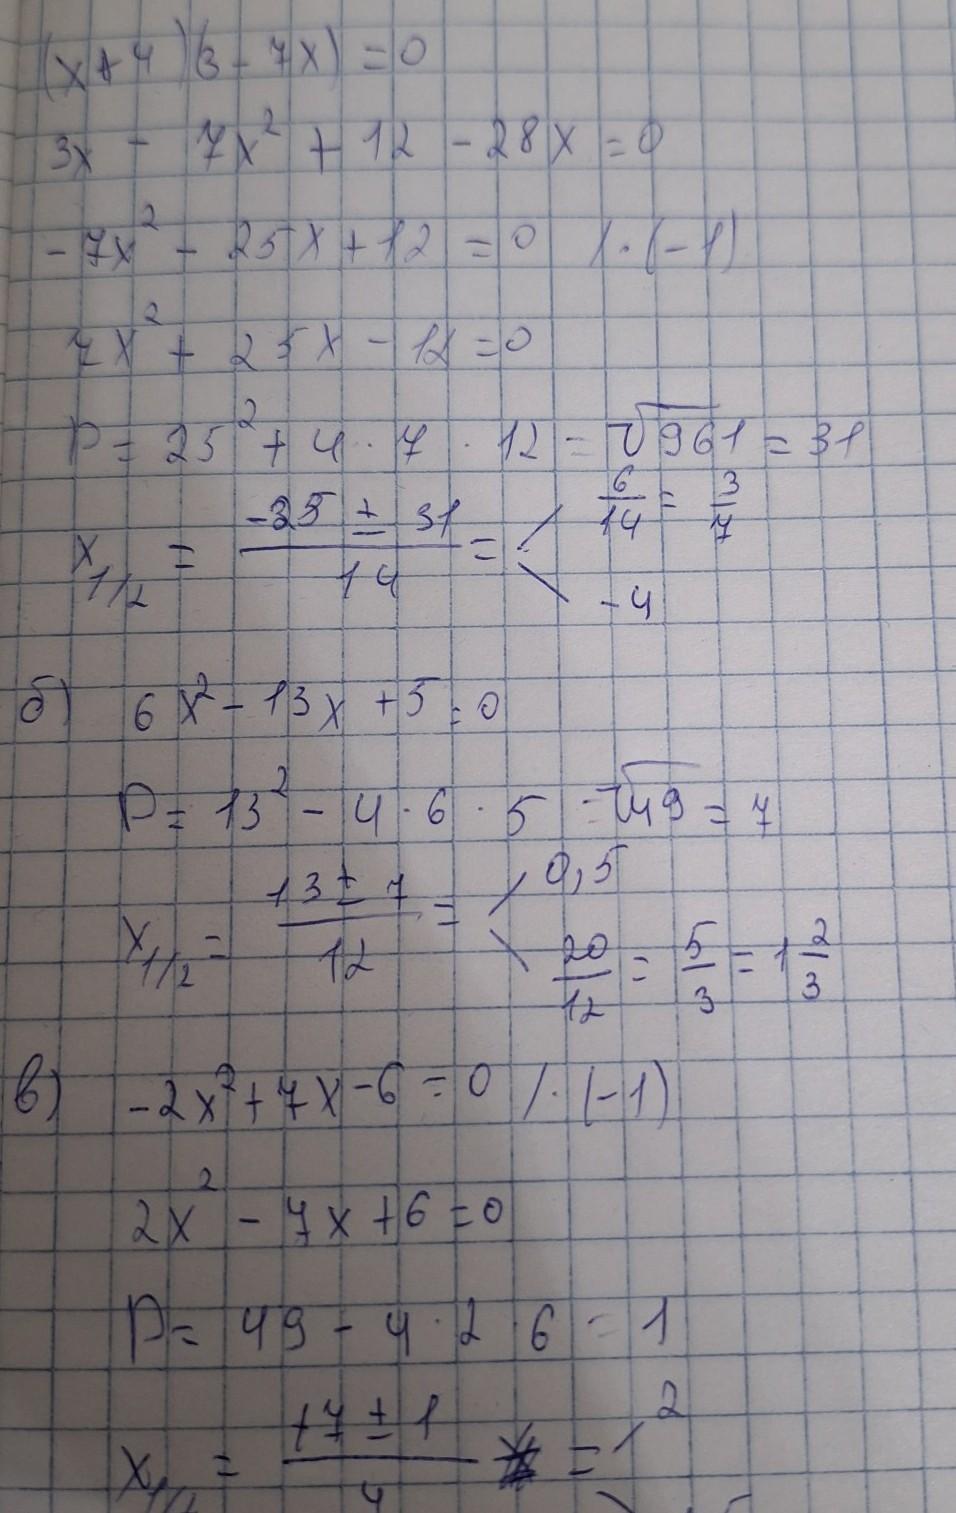 (x+4)(3-7x)=0
3x - 7x² + 12 - 28x = 0
-7x² - 25x + 12 = 0 / · (-1)
7x² + 25x - 12 = 0
D = 25² + 4 · 7 · 12 = √961 = 31
x1/2 = (-25 ± 31)/14 = 6/14 = 3/7
-4
б) 6x² - 13x + 5 = 0
D = 13² - 4 · 6 · 5 = √49 = 7
x1/2 = (13 ± 7)/12 = 0,5
20/12 = 5/3 = 1 2/3
в) -2x² + 7x - 6 = 0 / · (-1)
2x² - 7x + 6 = 0
D = 49 - 4 · 2 · 6 = 1
x1/2 = (+7 ± 1)/4 = 2